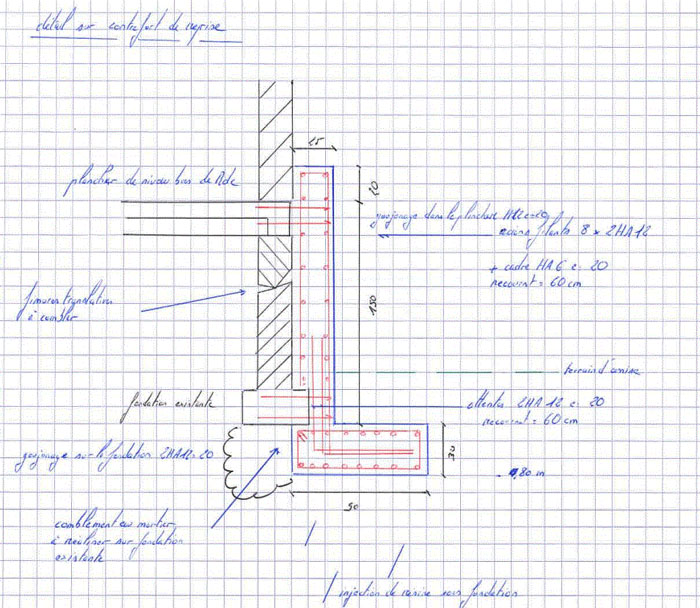 détail sur contrefort de reprise
25
20
plancher de niveau bas de Rdc
goujonnage dans le plancher
filants 8 x 2HA12
+ cadre HA6 e= 20
recouvrt = 60cm
150
fissures
à combler
terrain d'assise
fondation existante
attentes 2HA12 e= 20
recouvrt = 60cm
goujonnage sur la fondation 2HA12=20
30
0,80 m
90
comblement au mortier
à réaliser sur fondation
existante
injection de résine sous fondation